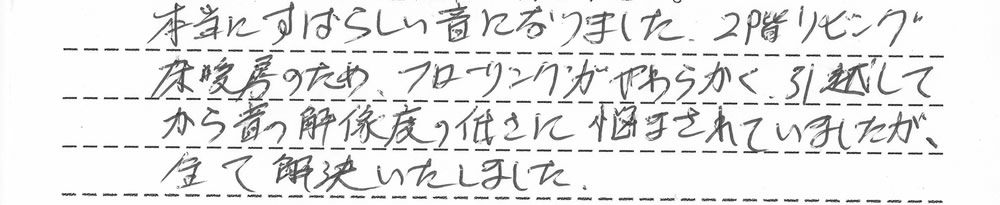 本当にすばらしい音になりました。2階リビング
床暖房のため、フローリングがやわらかく、引越して
から音の解像度の低さに悩まされていましたが、
全て解決いたしました。